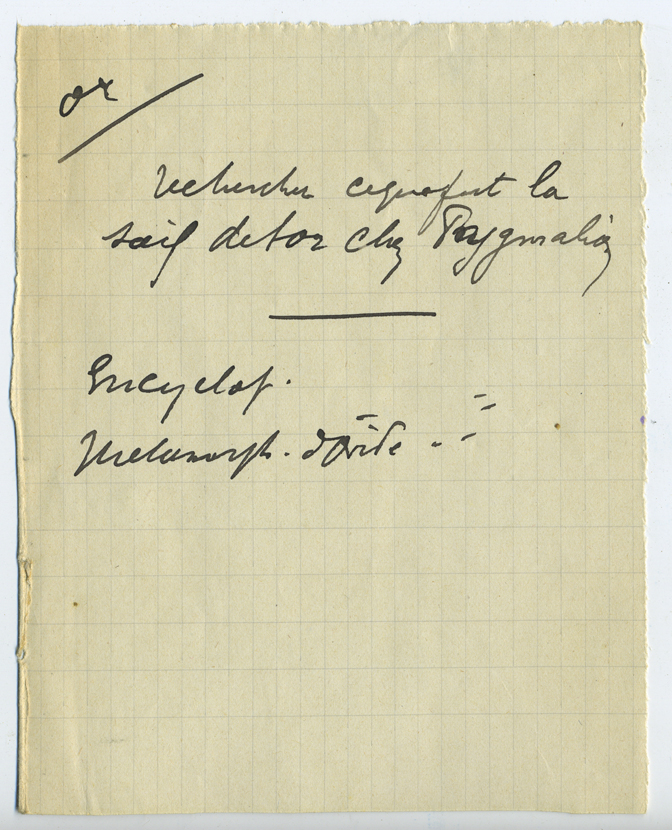 or
rechercher ce que fut la
soif de l'or chez Pygmalion
Encyclop.
Metamorph. d'Ovide